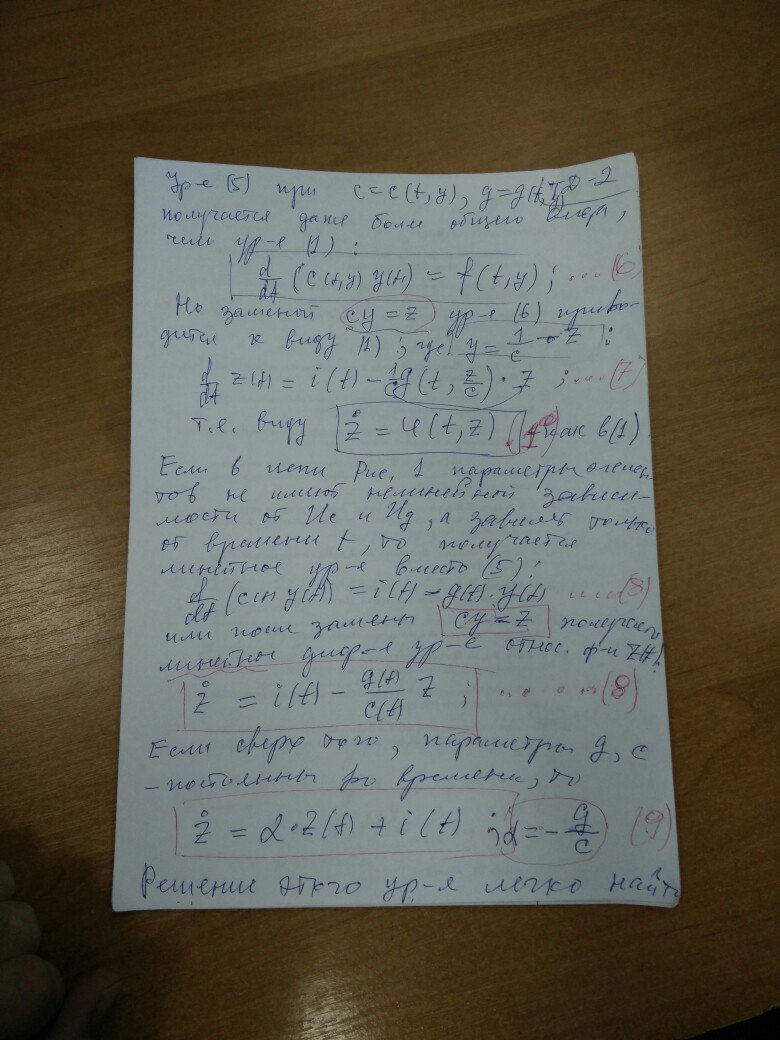 Ур-е (5) при c=c(t,y), g=g(t,y) ТД-2
получается даже боли общего вида,
чем ур-е (1):
d/dt (c(t,y) y(t)) = f(t,y); ...(6)
Но заменой cy=z ур-е (6) приво-
дится к виду (1); где y = 1/c · z :
d/dt z(t) = i(t) - 1/c g(t, z/c) · z ; ...(7)
т.е. виду ż = φ(t,z) как в (1).
Если в цепи Рис. 1 параметры элемен-
тов не имеют нелинейной зависи-
мости от Uc и Ug, а зависят только
от времени t, то получается
линейное ур-е вместо (5):
d/dt (c(t) y(t)) = i(t) - g(t) · y(t) .....(8)
или после замены cy=z получаем
линейное диф-е ур-е относ. ф-и z(t):
ż = i(t) - g(t)/c(t) z ; .....(8)
Если сверх того, параметры g, c
- постоянны во времени, то
ż = α·z(t) + i(t) ; α = - g/c (9)
Решение этого ур-я легко найти